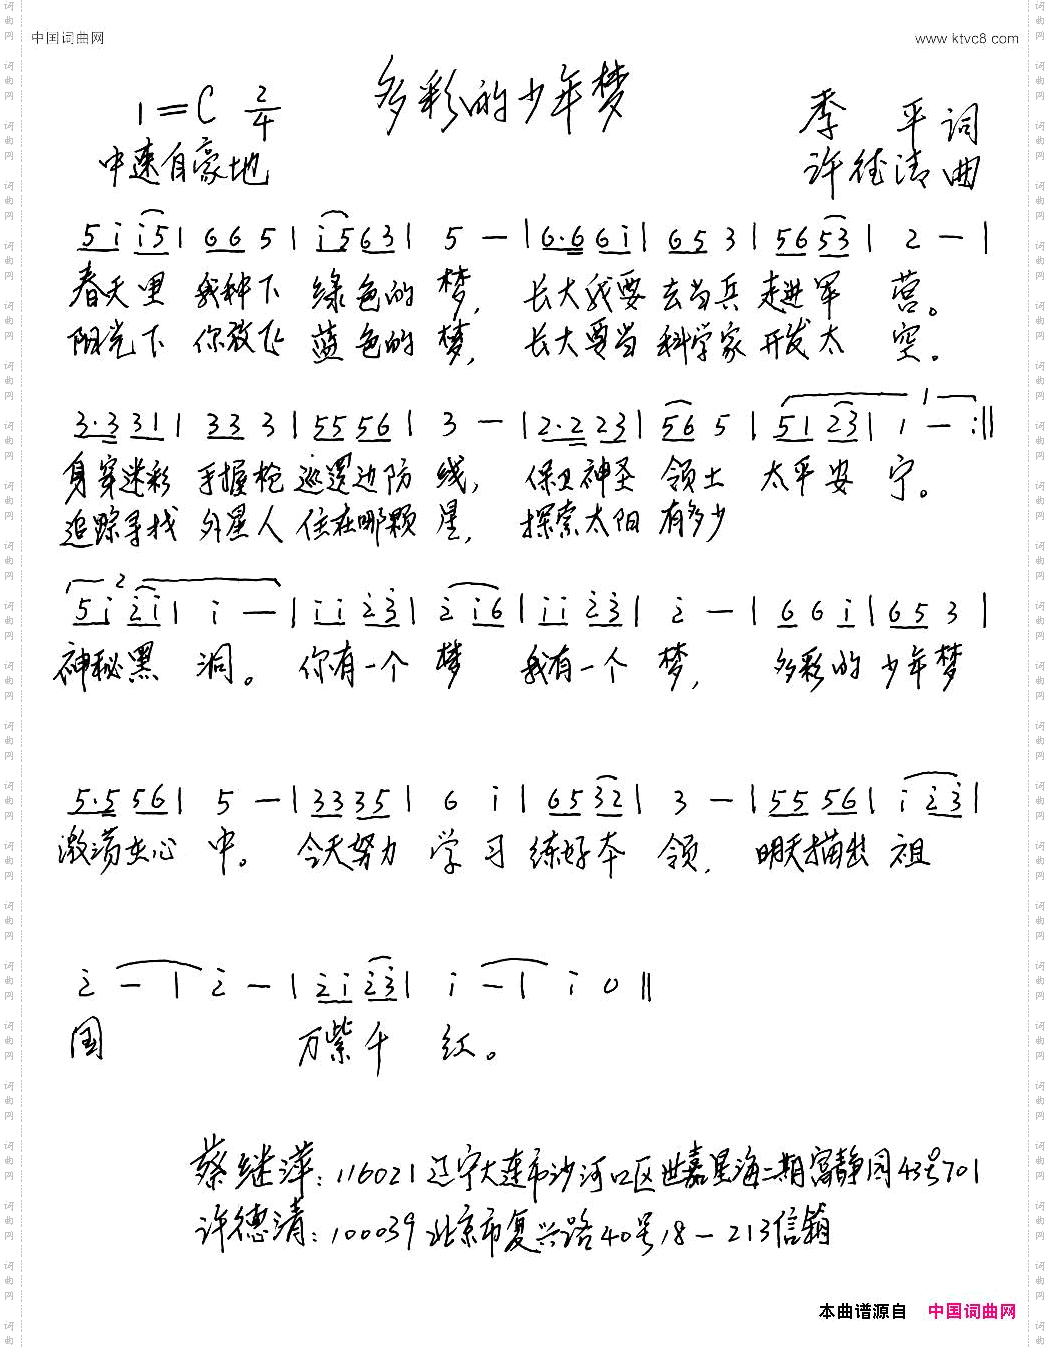 中国词曲网
www.ktvc8.com
多彩的少年梦
1=C 2/4
中速自豪地
李 平词
许德清曲
5 i i5 | 6 6 5 | i5 6 3 | 5 — | 6·6 6 i | 6 5 3 | 5 6 5 3 | 2 — |
春天里 我种下 绿色的 梦， 长大我要 去当兵 走进军 营。
阳光下 你放飞 蓝色的 梦， 长大要当 科学家 开发太 空。
3·3 3 1 | 3 3 3 | 5 5 5 6 | 3 — | 2·2 2 3 | 5 6 5 | 5 1 2 3 | 1 — :||
身穿迷彩 手握枪 巡逻边防 线， 保卫神圣 领土 太平安 宁。
追踪寻找 外星人 住在哪颗 星， 探索太阳 有多少
5 i 2 i | i — | i i 2 3 | 2 i 6 | i i 2 3 | 2 — | 6 6 i | 6 5 3 |
神秘黑 洞。 你有一个 梦 我有一个 梦， 多彩的 少年梦
5·5 5 6 | 5 — | 3 3 3 5 | 6 i | 6 5 3 2 | 3 — | 5 5 5 6 | i 2 3 |
激荡在心 中。 今天努力 学习 练好本 领， 明天描出 祖
2 — | 2 — | 2 i 2 3 | i — | i 0 ||
国 万紫千 红。
蔡继萍：116021 辽宁大连市沙河口区世嘉星海二期富静园43号701
许德清：100039 北京市复兴路40号18—213信箱
本曲谱源自 中国词曲网